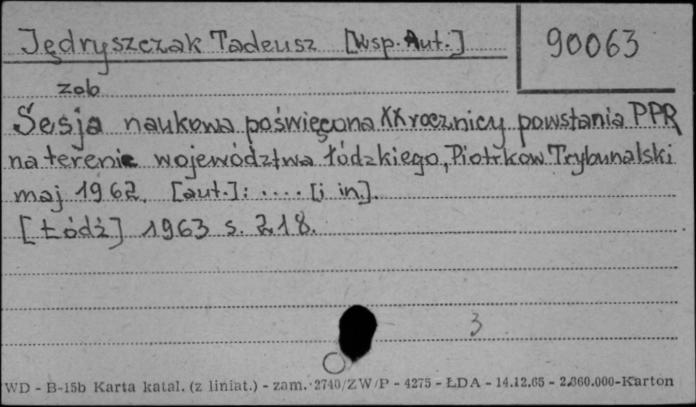 Jędryszczak Tadeusz [Wsp. Aut.]
90063
zob
Sesja naukowa poświęcona XX rocznicy powstania PPR
na terenie województwa łódzkiego, Piotrkow Trybunalski
maj 1962. [aut.]: .... [i in.].
[Łódź] 1963 s. 218.
3
WD - B-15b Karta katal. (z liniat.) - zam. 2740/ZW/P - 4275 - ŁDA - 14.12.65 - 2.860.000-Karton